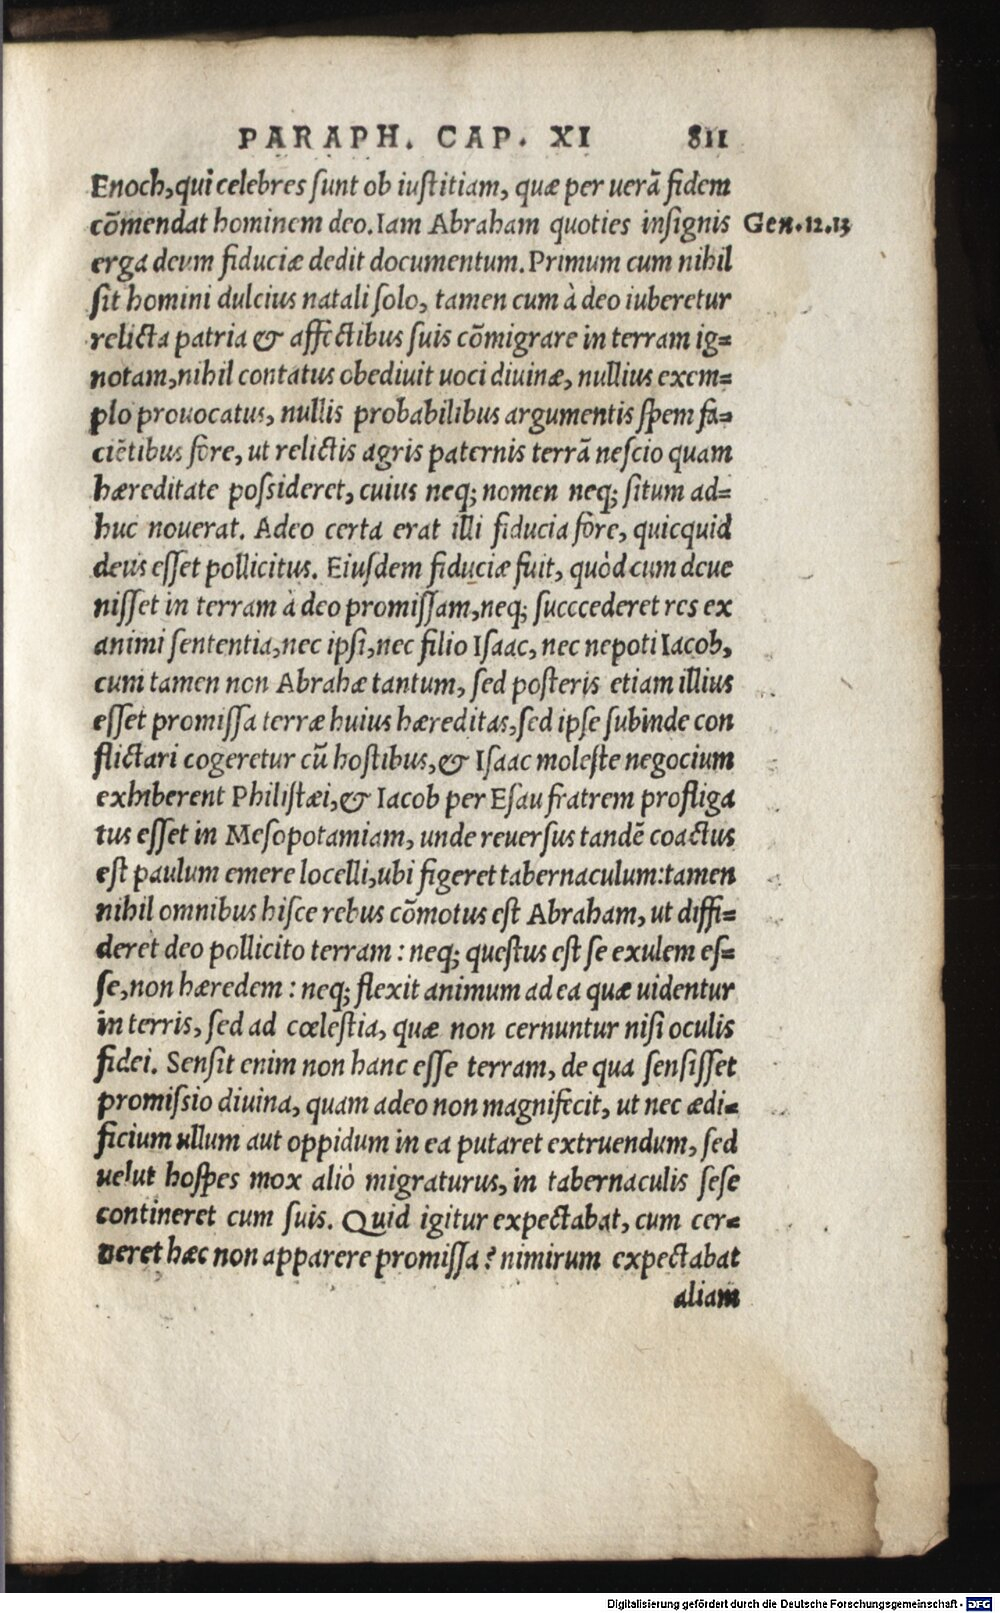 PARAPH. CAP. XI 811
Enoch, qui celebres sunt ob iustitiam, quæ per uerã fidem
cõmendat hominem deo. Iam Abraham quoties insignis Gen.12.13
erga deum fiduciæ dedit documentum. Primum cum nihil
sit homini dulcius natali solo, tamen cum à deo iuberetur
relicta patria & affectibus suis cõmigrare in terram ig=
notam, nihil contatus obediuit uoci diuinæ, nullius exem=
plo prouocatus, nullis probabilibus argumentis spem fa=
ciẽtibus fore, ut relictis agris paternis terrã nescio quam
hæreditate possideret, cuius neq; nomen neq; situm ad=
huc nouerat. Adeo certa erat illi fiducia fore, quicquid
deus esset pollicitus. Eiusdem fiduciæ fuit, quòd cum deue
nisset in terram à deo promissam, neq; succederet res ex
animi sententia, nec ipsi, nec filio Isaac, nec nepoti Iacob,
cum tamen non Abrahæ tantum, sed posteris etiam illius
esset promissa terræ huius hæreditas, sed ipse subinde con
flictari cogeretur cũ hostibus, & Isaac moleste negocium
exhiberent Philistæi, & Iacob per Esau fratrem profliga
tus esset in Mesopotamiam, unde reuersus tandẽ coactus
est paulum emere locelli, ubi figeret tabernaculum: tamen
nihil omnibus hisce rebus cõmotus est Abraham, ut diffi=
deret deo pollicito terram : neq; questus est se exulem es=
se, non hæredem : neq; flexit animum ad ea quæ uidentur
in terris, sed ad cœlestia, quæ non cernuntur nisi oculis
fidei. Sensit enim non hanc esse terram, de qua sensisset
promissio diuina, quam adeo non magnifecit, ut nec ædi=
ficium ullum aut oppidum in ea putaret extruendum, sed
uelut hospes mox aliò migraturus, in tabernaculis sese
contineret cum suis. Quid igitur expectabat, cum cer=
neret hæc non apparere promissa? nimirum expectabat
aliam
Digitalisierung gefördert durch die Deutsche Forschungsgemeinschaft - DFG